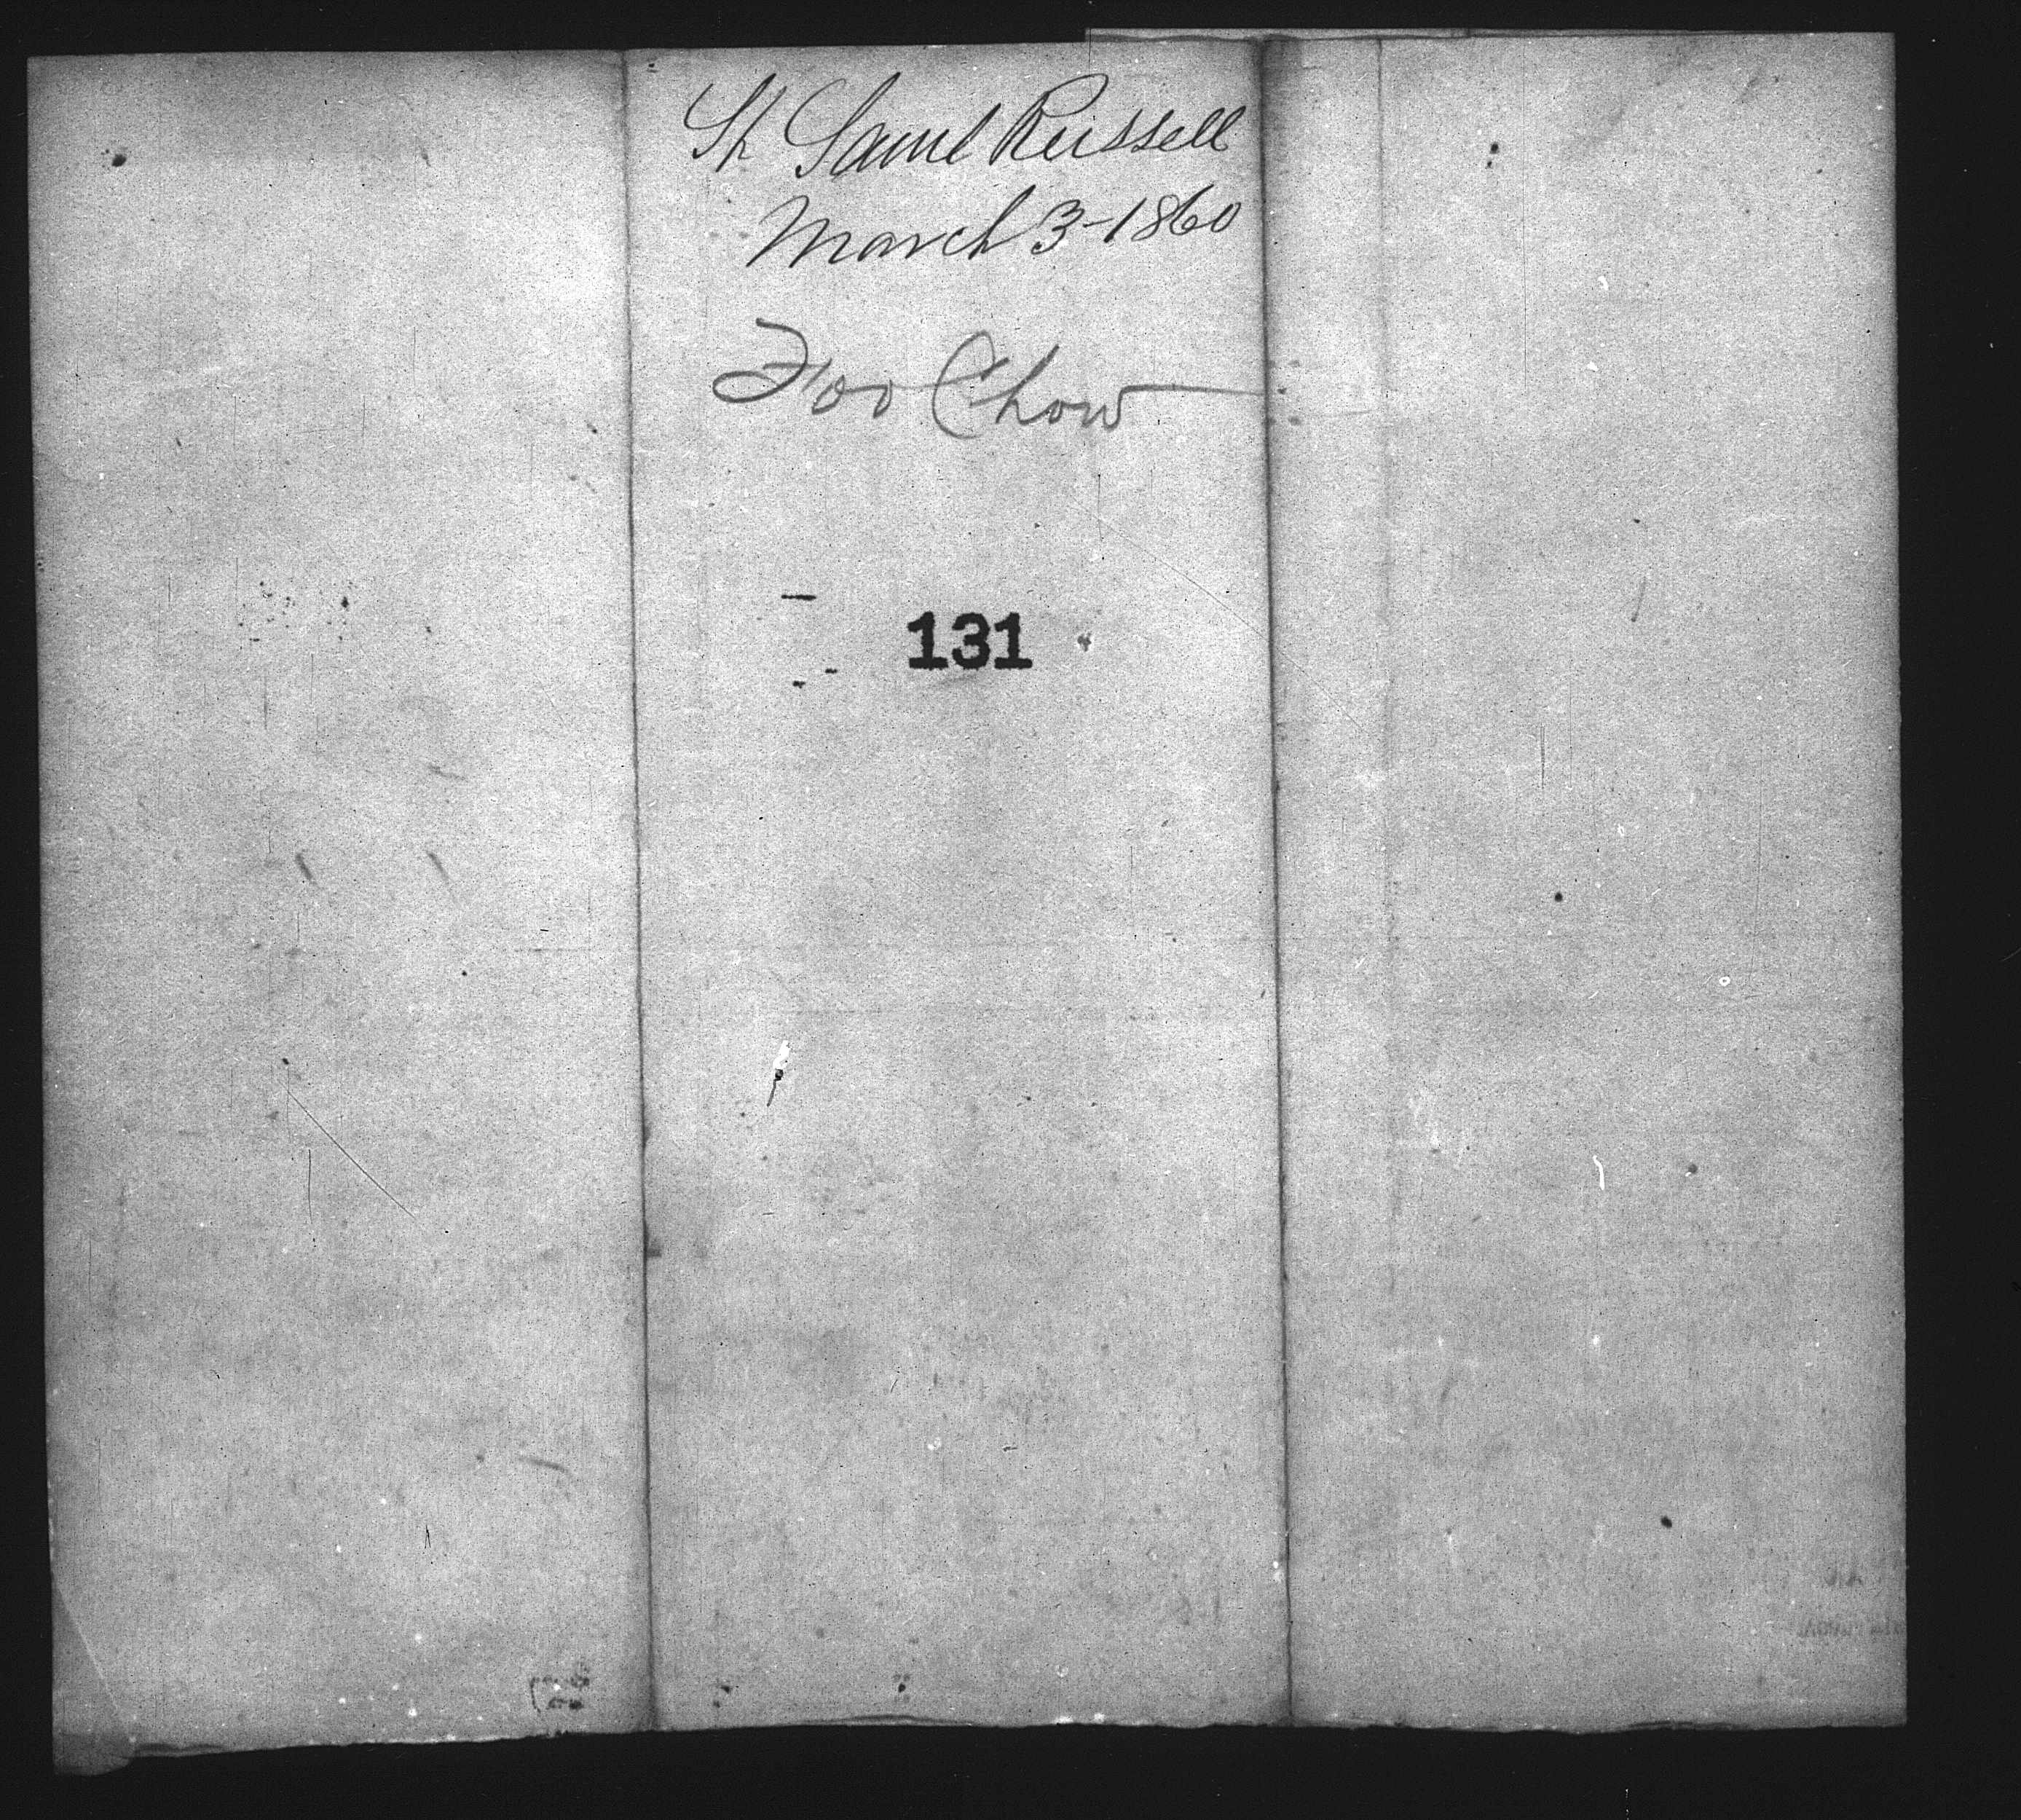 Sh Saml Russell
March 3-1860
Foo Chow
131